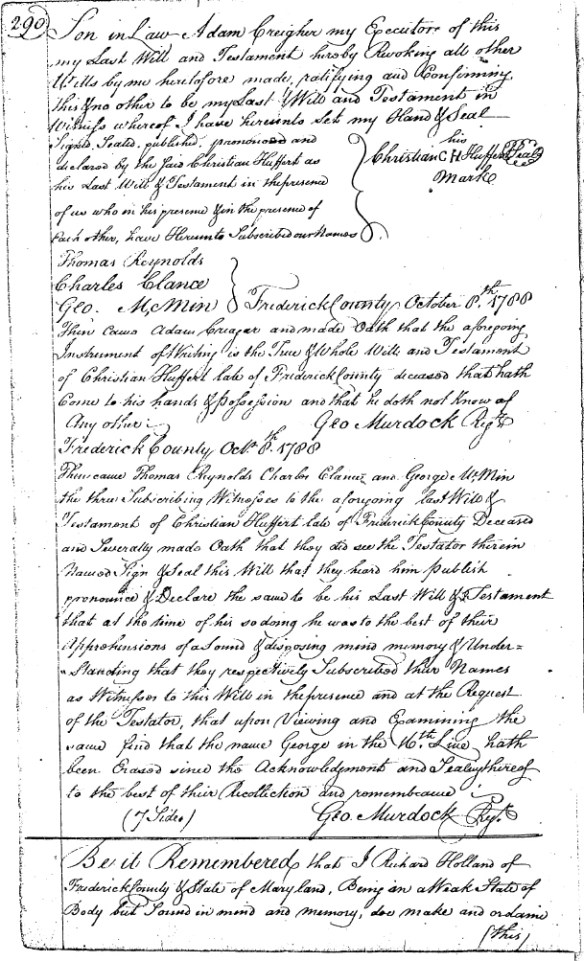 290
Son in Law Adam Creigher my Executor of this
my Last Will and Testament hereby Revoking all other
Wills by me heretofore made, ratifying and Confirming
this & no other to be my Last Will and Testament in
Witness whereof I have hereunto Set my Hand & Seal
Signed, Sealed, published, pronounced and
declared by the Said Christian Huffert as
his Last Will & Testament in the presence
of us who in his presence & in the presence of
Each other, have Hereunto Subscribed our Names
his
Christian CH Huffert Seal
Mark
Thomas Reynolds
Charles Clance
Geo. McMin
Frederick County October 8.th 1788
Then came Adam Creager and made Oath that the aforegoing
Instrument of Writing is the True & Whole Will and Testament
of Christian Huffert late of Frederick County deceased that hath
Come to his hands & possession and that he doth not know of
Any other
Geo Murdock Regtr
Frederick County Oct. 8th. 1788
Then came Thomas Reynolds Charles Clance and George McMin
the three Subscribing Witnesses to the aforgoing last Will &
Testament of Christian Huffert late of Frederick County Deceased
and Severally made Oath that they did see the Testator therein
Named Sign & Seal this Will that they heard him publish
pronounce & Declare the same to be his Last Will & Testament
that at the time of his so doing he was to the best of their
Apprehensions of a Sound & disposing mind memory & Under=
=Standing that they respectively Subscribed their Names
as Witnesses to this Will in the presence and at the Request
of the Testator, that upon Viewing and Examining the
same find that the name George in the 16th. Line hath
been Erased since the Acknowledgment and Sealing thereof
to the best of their Recollection and remembrance
(7 Sides)
Geo. Murdock Regtr
Be it Remembered that I Richard Holland of
Frederick County & State of Maryland, Being in a Weak State of
Body but Sound in mind and memory, doe make and ordaine
(this)